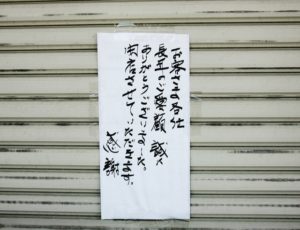 長年のご愛顧 誠に
ありがとうございました。
閉店させていただきます。
感謝